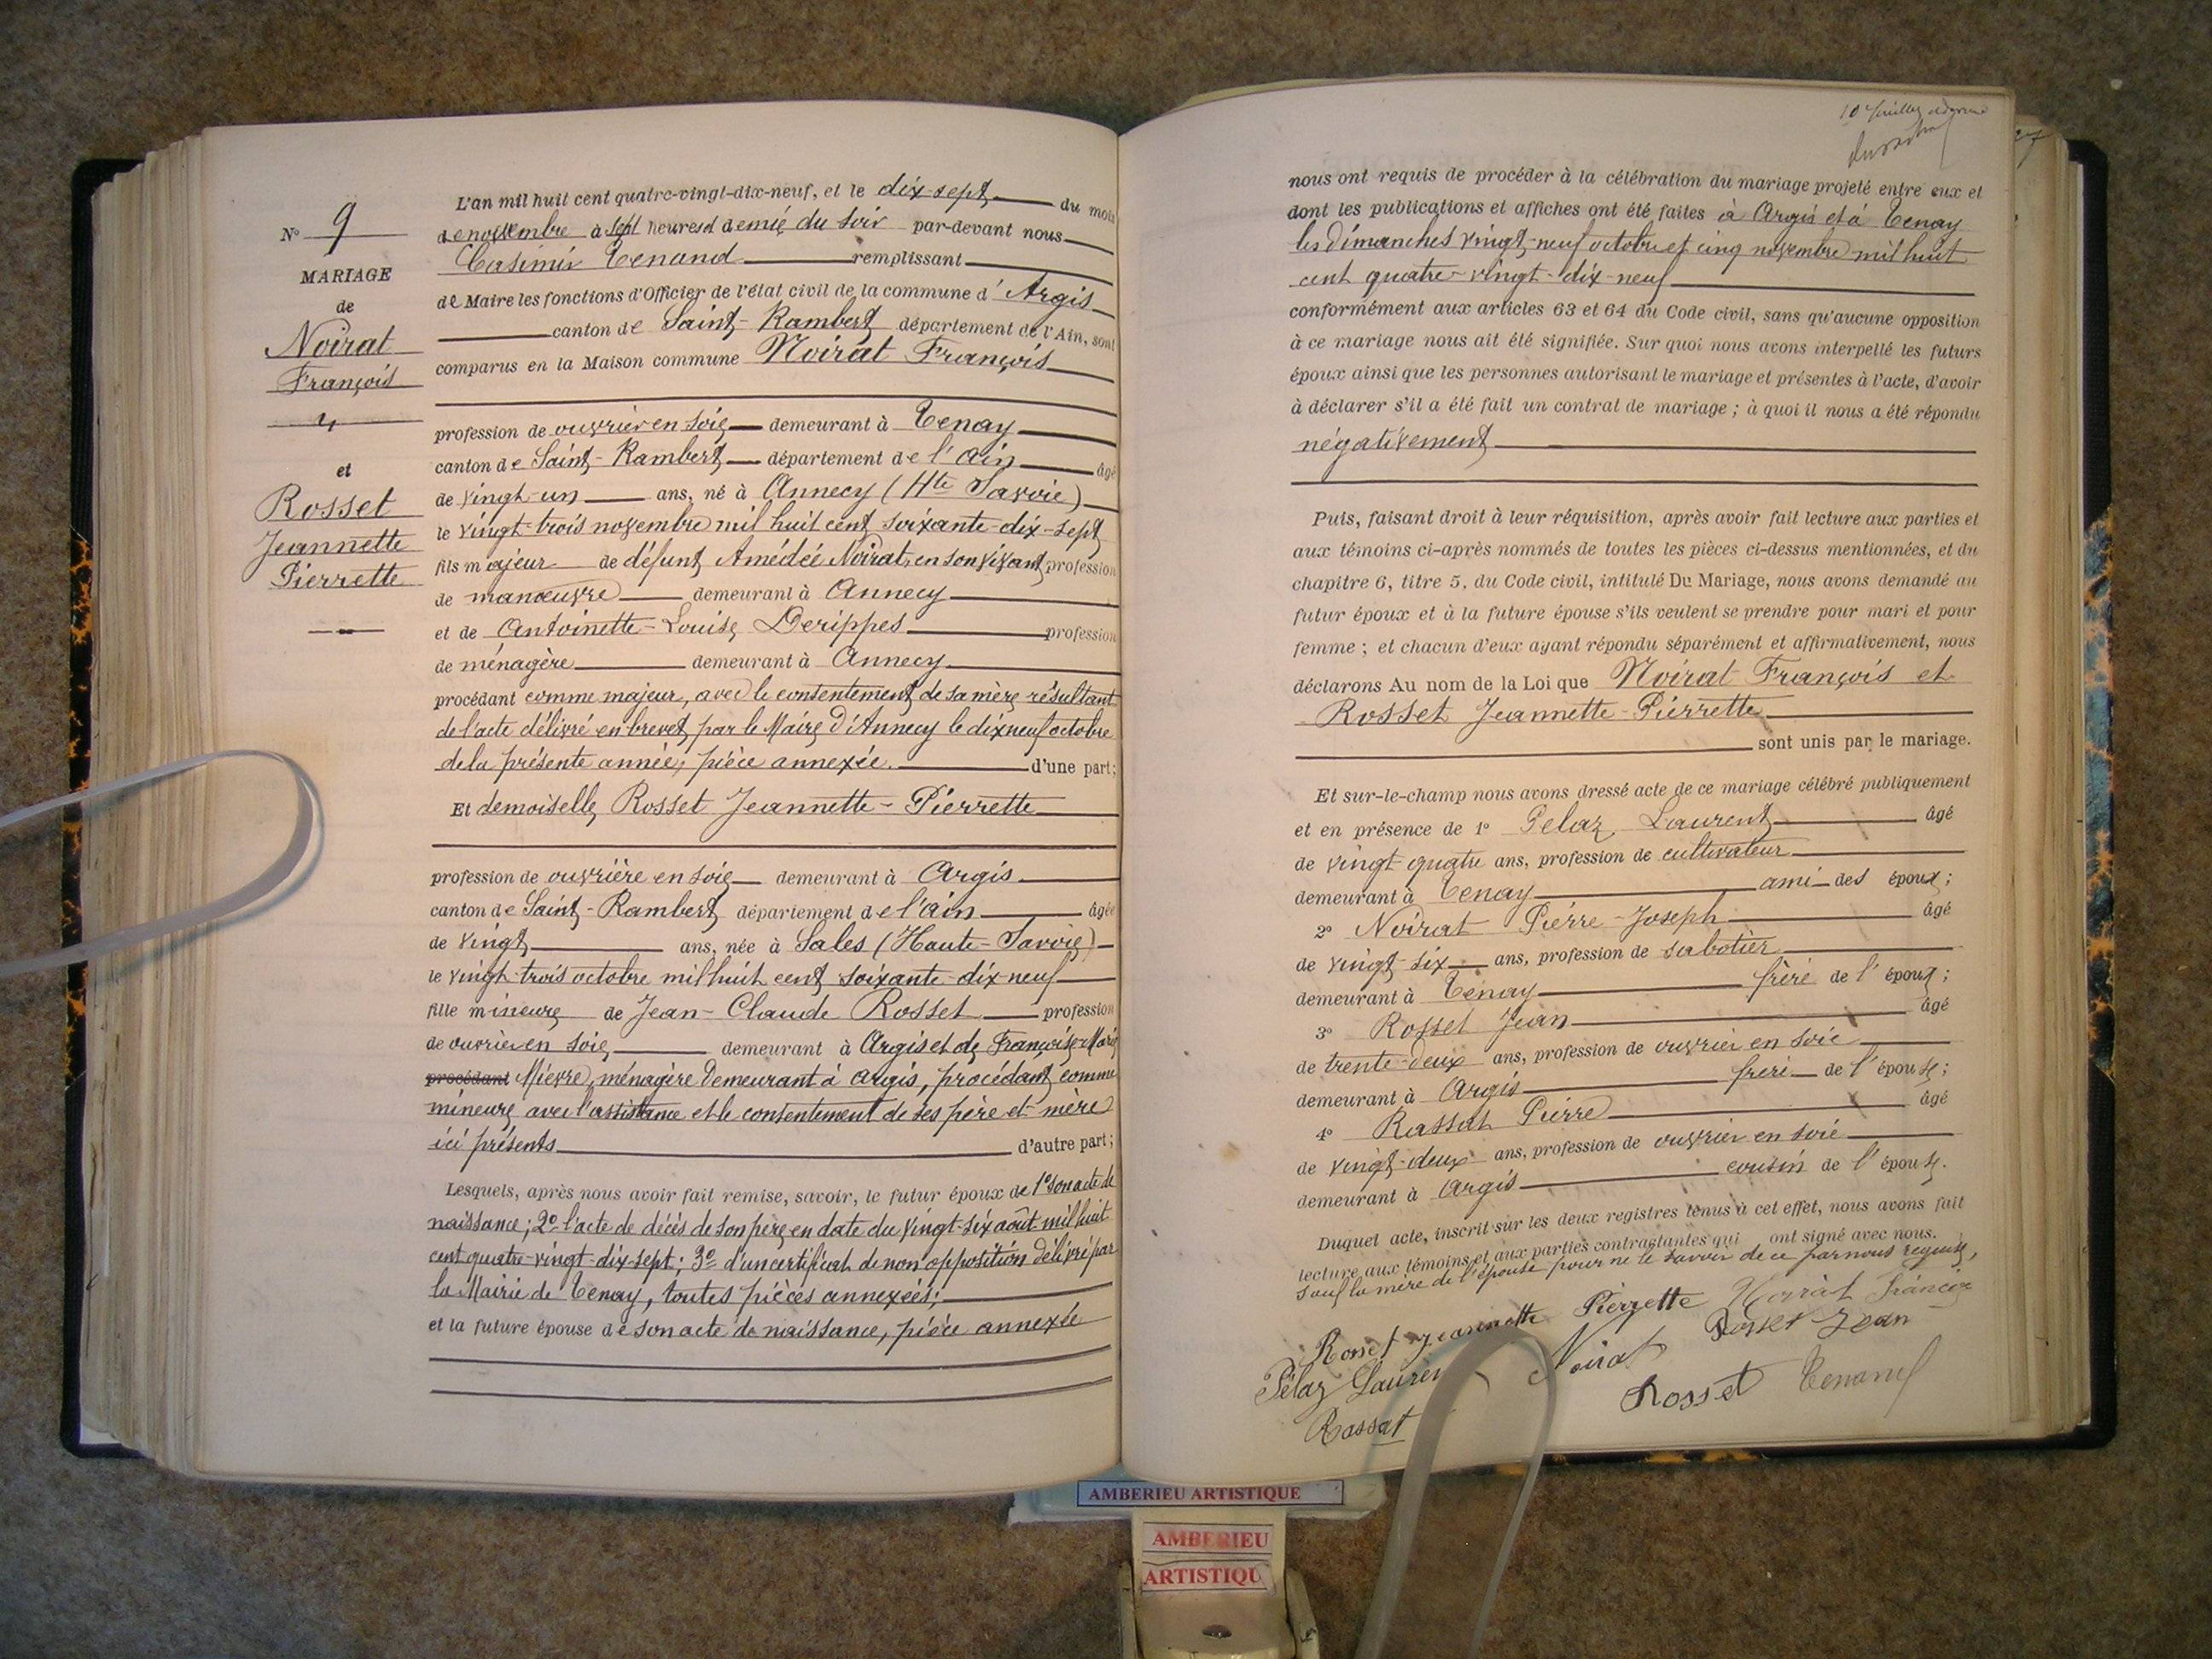 N° 9
MARIAGE
de
Noirat
François
et
Rosset
Jeannette
Pierrette
L'an mil huit cent quatre-vingt-dix-neuf, et le dix-sept du mois
de novembre à sept heures et demie du soir par-devant nous
Casimir Tenand remplissant
de Maire les fonctions d'Officier de l'état civil de la commune d'Argis
canton de Saint-Rambert département de l'Ain, sont
comparus en la Maison commune Noirat François
profession de ouvrier en soie demeurant à Tenay
canton de Saint-Rambert département de l'Ain âgé
de vingt-un ans, né à Annecy (Hte Savoie)
le vingt-trois novembre mil huit cent soixante-dix-sept
fils majeur de défunt Amédée Noirat, en son vivant profession
de manœuvre demeurant à Annecy
et de Antoinette-Louise Derippes profession
de ménagère demeurant à Annecy
procédant comme majeur, avec le consentement de sa mère résultant
de l'acte délivré en brevet par le Maire d'Annecy le dix neuf octobre
de la présente année, pièce annexée. d'une part;
Et demoiselle Rosset Jeannette-Pierrette
profession de ouvrière en soie demeurant à Argis
canton de Saint-Rambert département de l'Ain âgée
de vingt ans, née à Sales (Haute-Savoie)
le vingt-trois octobre mil huit cent soixante-dix-neuf
fille mineure de Jean-Claude Rosset profession
de ouvrier en soie demeurant à Argis et de Françoise-Marie
procédant Mievre, ménagère demeurant à Argis, procédant comme
mineure avec l'assistance et le consentement de ses père et mère
ici présents d'autre part;
Lesquels, après nous avoir fait remise, savoir, le futur époux de 1° son acte de
naissance; 2° l'acte de décès de son père en date du vingt-six août mil huit
cent quatre-vingt-dix-sept; 3° d'un certificat de non opposition délivré par
la Mairie de Tenay, toutes pièces annexées;
et la future épouse de son acte de naissance, pièce annexée
nous ont requis de procéder à la célébration du mariage projeté entre eux et
dont les publications et affiches ont été faites à Argis et à Tenay
les dimanches vingt-neuf octobre et cinq novembre mil huit
cent quatre-vingt-dix-neuf
conformément aux articles 63 et 64 du Code civil, sans qu'aucune opposition
à ce mariage nous ait été signifiée. Sur quoi nous avons interpellé les futurs
époux ainsi que les personnes autorisant le mariage et présentes à l'acte, d'avoir
à déclarer s'il a été fait un contrat de mariage; à quoi il nous a été répondu
négativement
Puis, faisant droit à leur réquisition, après avoir fait lecture aux parties et
aux témoins ci-après nommés de toutes les pièces ci-dessus mentionnées, et du
chapitre 6, titre 5, du Code civil, intitulé Du Mariage, nous avons demandé au
futur époux et à la future épouse s'ils veulent se prendre pour mari et pour
femme; et chacun d'eux ayant répondu séparément et affirmativement, nous
déclarons Au nom de la Loi que Noirat François et
Rosset Jeannette-Pierrette
sont unis par le mariage.
Et sur-le-champ nous avons dressé acte de ce mariage célébré publiquement
et en présence de 1° Pelaz Laurent âgé
de vingt quatre ans, profession de cultivateur
demeurant à Tenay ami des époux;
2° Noirat Pierre-Joseph âgé
de vingt-six ans, profession de sabotier
demeurant à Tenay frère de l'époux;
3° Rosset Jean âgé
de trente-deux ans, profession de ouvrier en soie
demeurant à Argis frère de l'épouse;
4° Rassat Pierre âgé
de vingt-deux ans, profession de ouvrier en soie
demeurant à Argis cousin de l'épouse.
Duquel acte, inscrit sur les deux registres tenus à cet effet, nous avons fait
lecture aux témoins et aux parties contractantes qui ont signé avec nous.
sauf la mère de l'épouse pour ne le savoir de ce par nous requise,
Rosset Jeannette Pierrette Noirat François
Pélaz Laurent Noirat Rosset Jean
Rassat Rosset Tenand
AMBERIEU ARTISTIQUE
AMBERIEU
ARTISTIQU